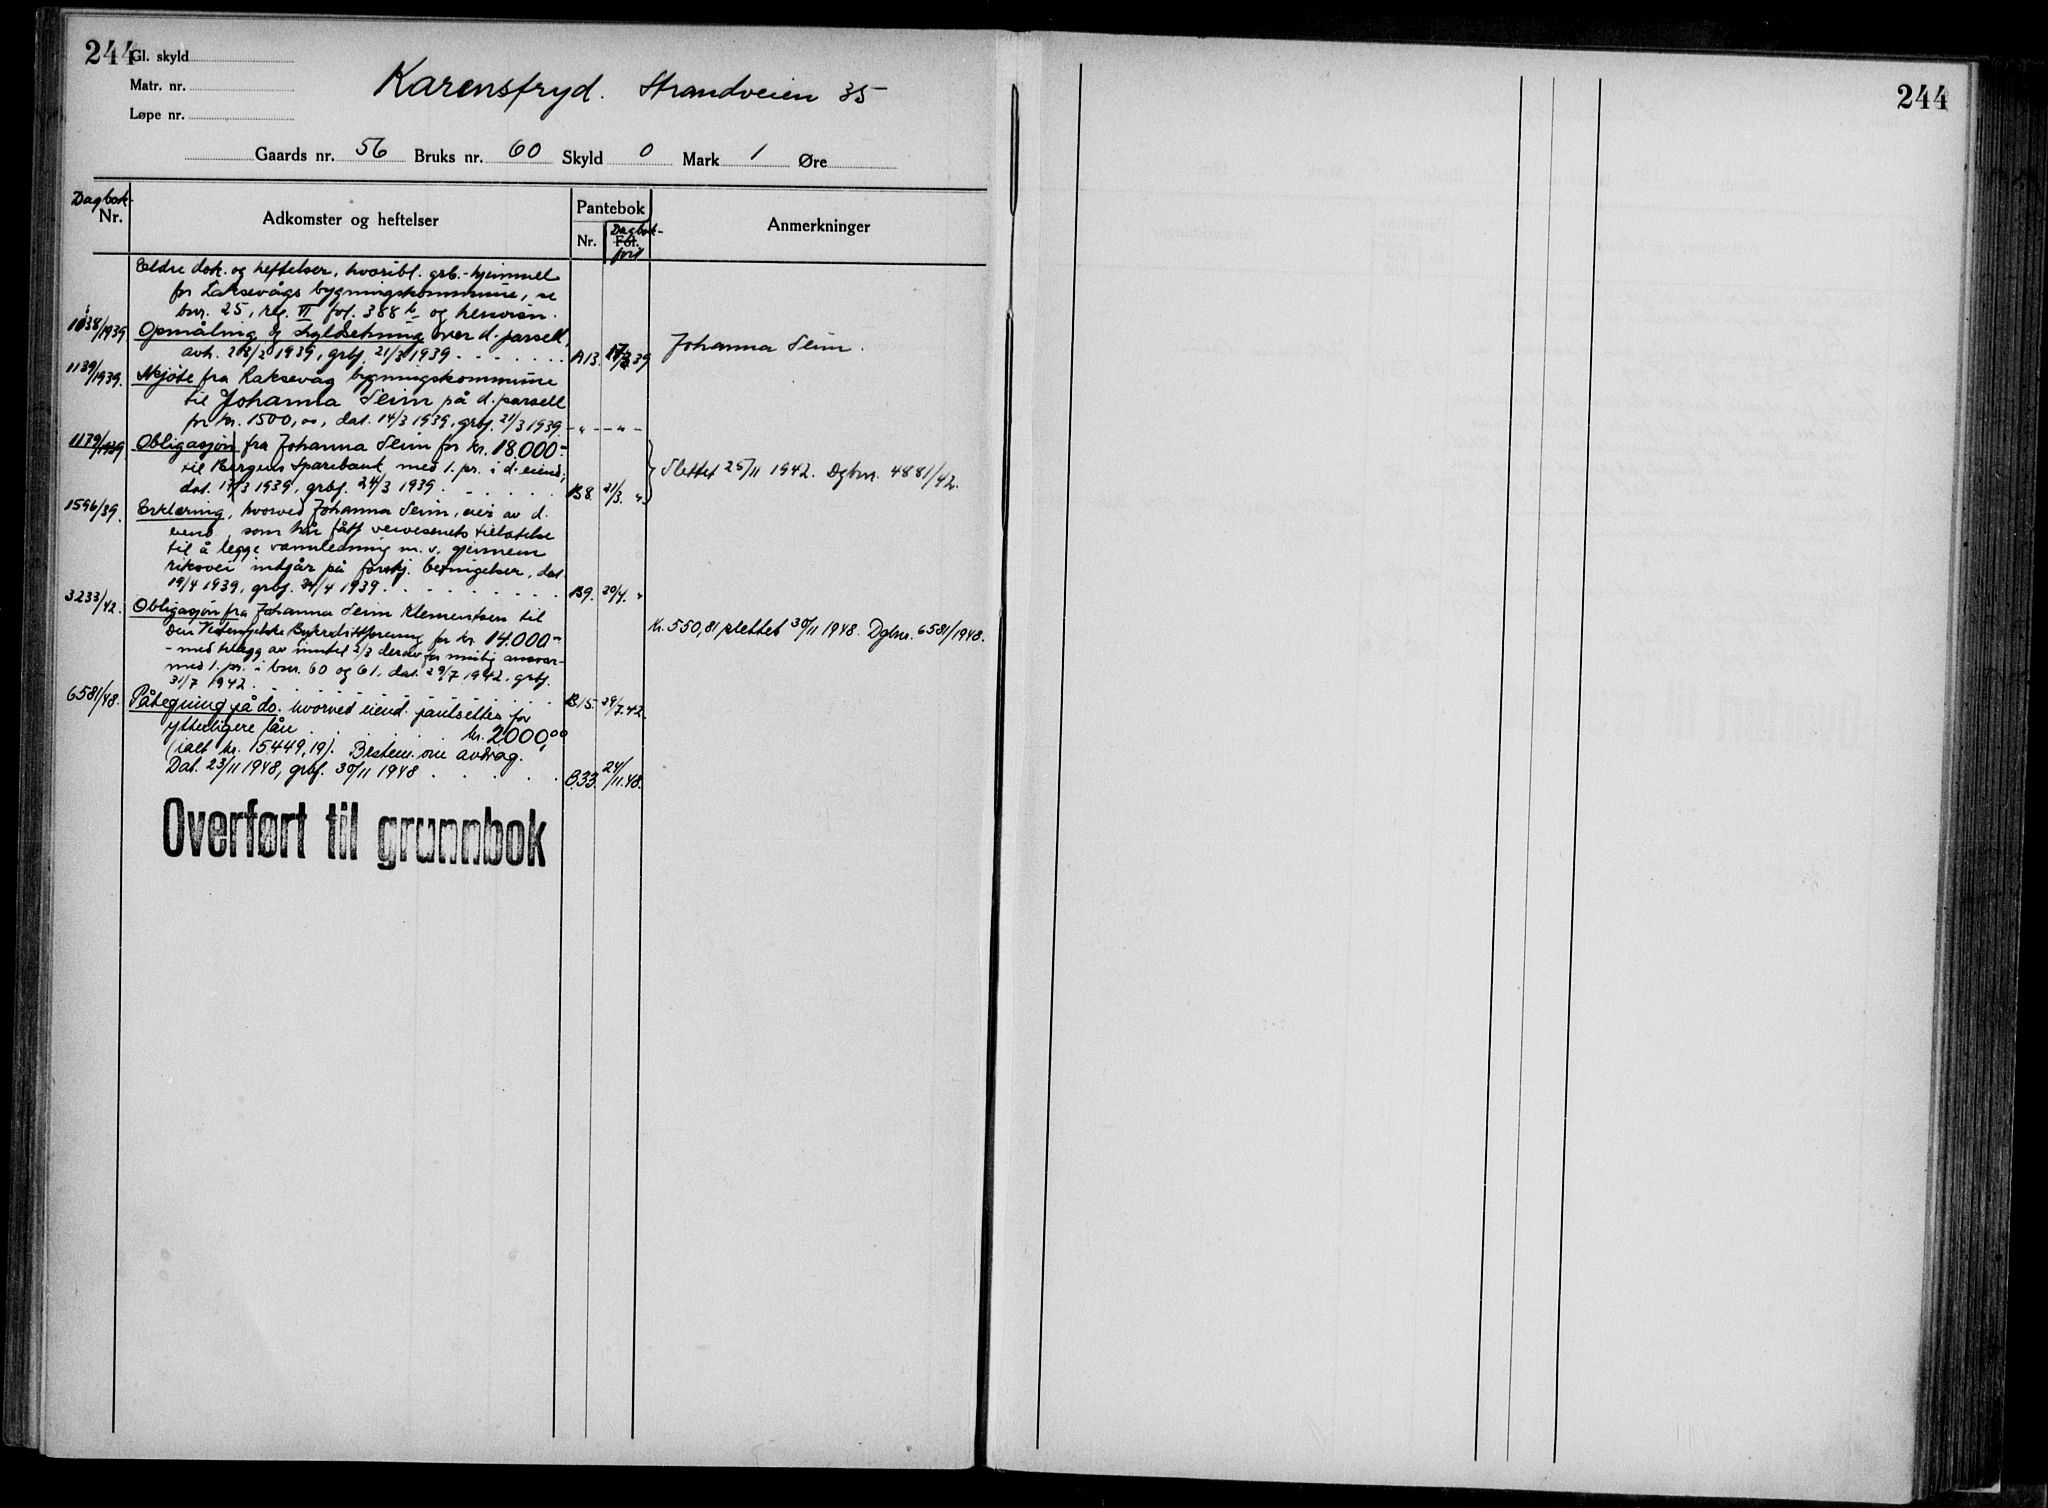 244 Gl. skyld
Matr. nr.
Løpe nr.
Karensfryd. Strandveien 35
Gaards nr. 56 Bruks nr. 60 Skyld 0 Mark 1 Øre
Dagbok-
Nr.
Adkomster og heftelser
Pantebok
Nr.
Fol.
Dagbok-
ført
Anmerkninger
Eldre dok. og heftelser, hvoribl. grb.-hjemmel
for Laksevågs bygningskommune, se
bnr. 25, reg. VI fol. 388 b og henvisn.
1138/1939 Opmåling og skyldsetning over d. parsell,
avh. 28/2 1939, grbf. 21/3 1939 A13. 17/3 39 Johanna Seim.
1139/1939. Skjøte fra Laksevåg bygningskommune
til Johanna Seim på d. parsell
for kr. 1500,00, dat. 14/3 1939, grbf. 21/3 1939 - " - - " -
1179/1939 Obligasjon fra Johanna Seim for kr. 18.000-
til Bergens Sparebank med 1. pr. i d. eiend.,
dat. 17/3 1939, grbf. 24/3 1939 B8. 21/3. " Slettet 25/11 1942. Dgbnr. 4881/42.
1596/39. Erklæring, hvorved Johanna Seim, eier av d.
eiend., som har fått veivesenets tillatelse
til å legge vannledning m. v. gjennem
riksvei indgår på forskj. betingelser, dat.
19/4 1939, grbf. 24/4 1939 B9. 20/4. "
3233/42. Obligasjon fra Johanna Seim Klementsen til
Den Vestenfjelske Bykreditforening for kr. 14.000-
- med tillegg av inntil 2/3 derav for mulig ansvar-
med 1. pr. i bnr. 60 og 61, dat. 29/7 1942, grbf.
31/7 1942 B15. 29/7.42.
Kr. 550,81 slettet 30/11 1948. Dgbnr. 6581/1948.
6581/48. Påtegning på do. hvorved eiend. pantsettes for
ytterligere lån kr. 2000,00
(ialt kr. 15.449,19). Bestem. om avdrag.
Dat. 23/11 1948, grbf. 30/11 1948 B.33. 24/11.48.
Overført til grunnbok
244